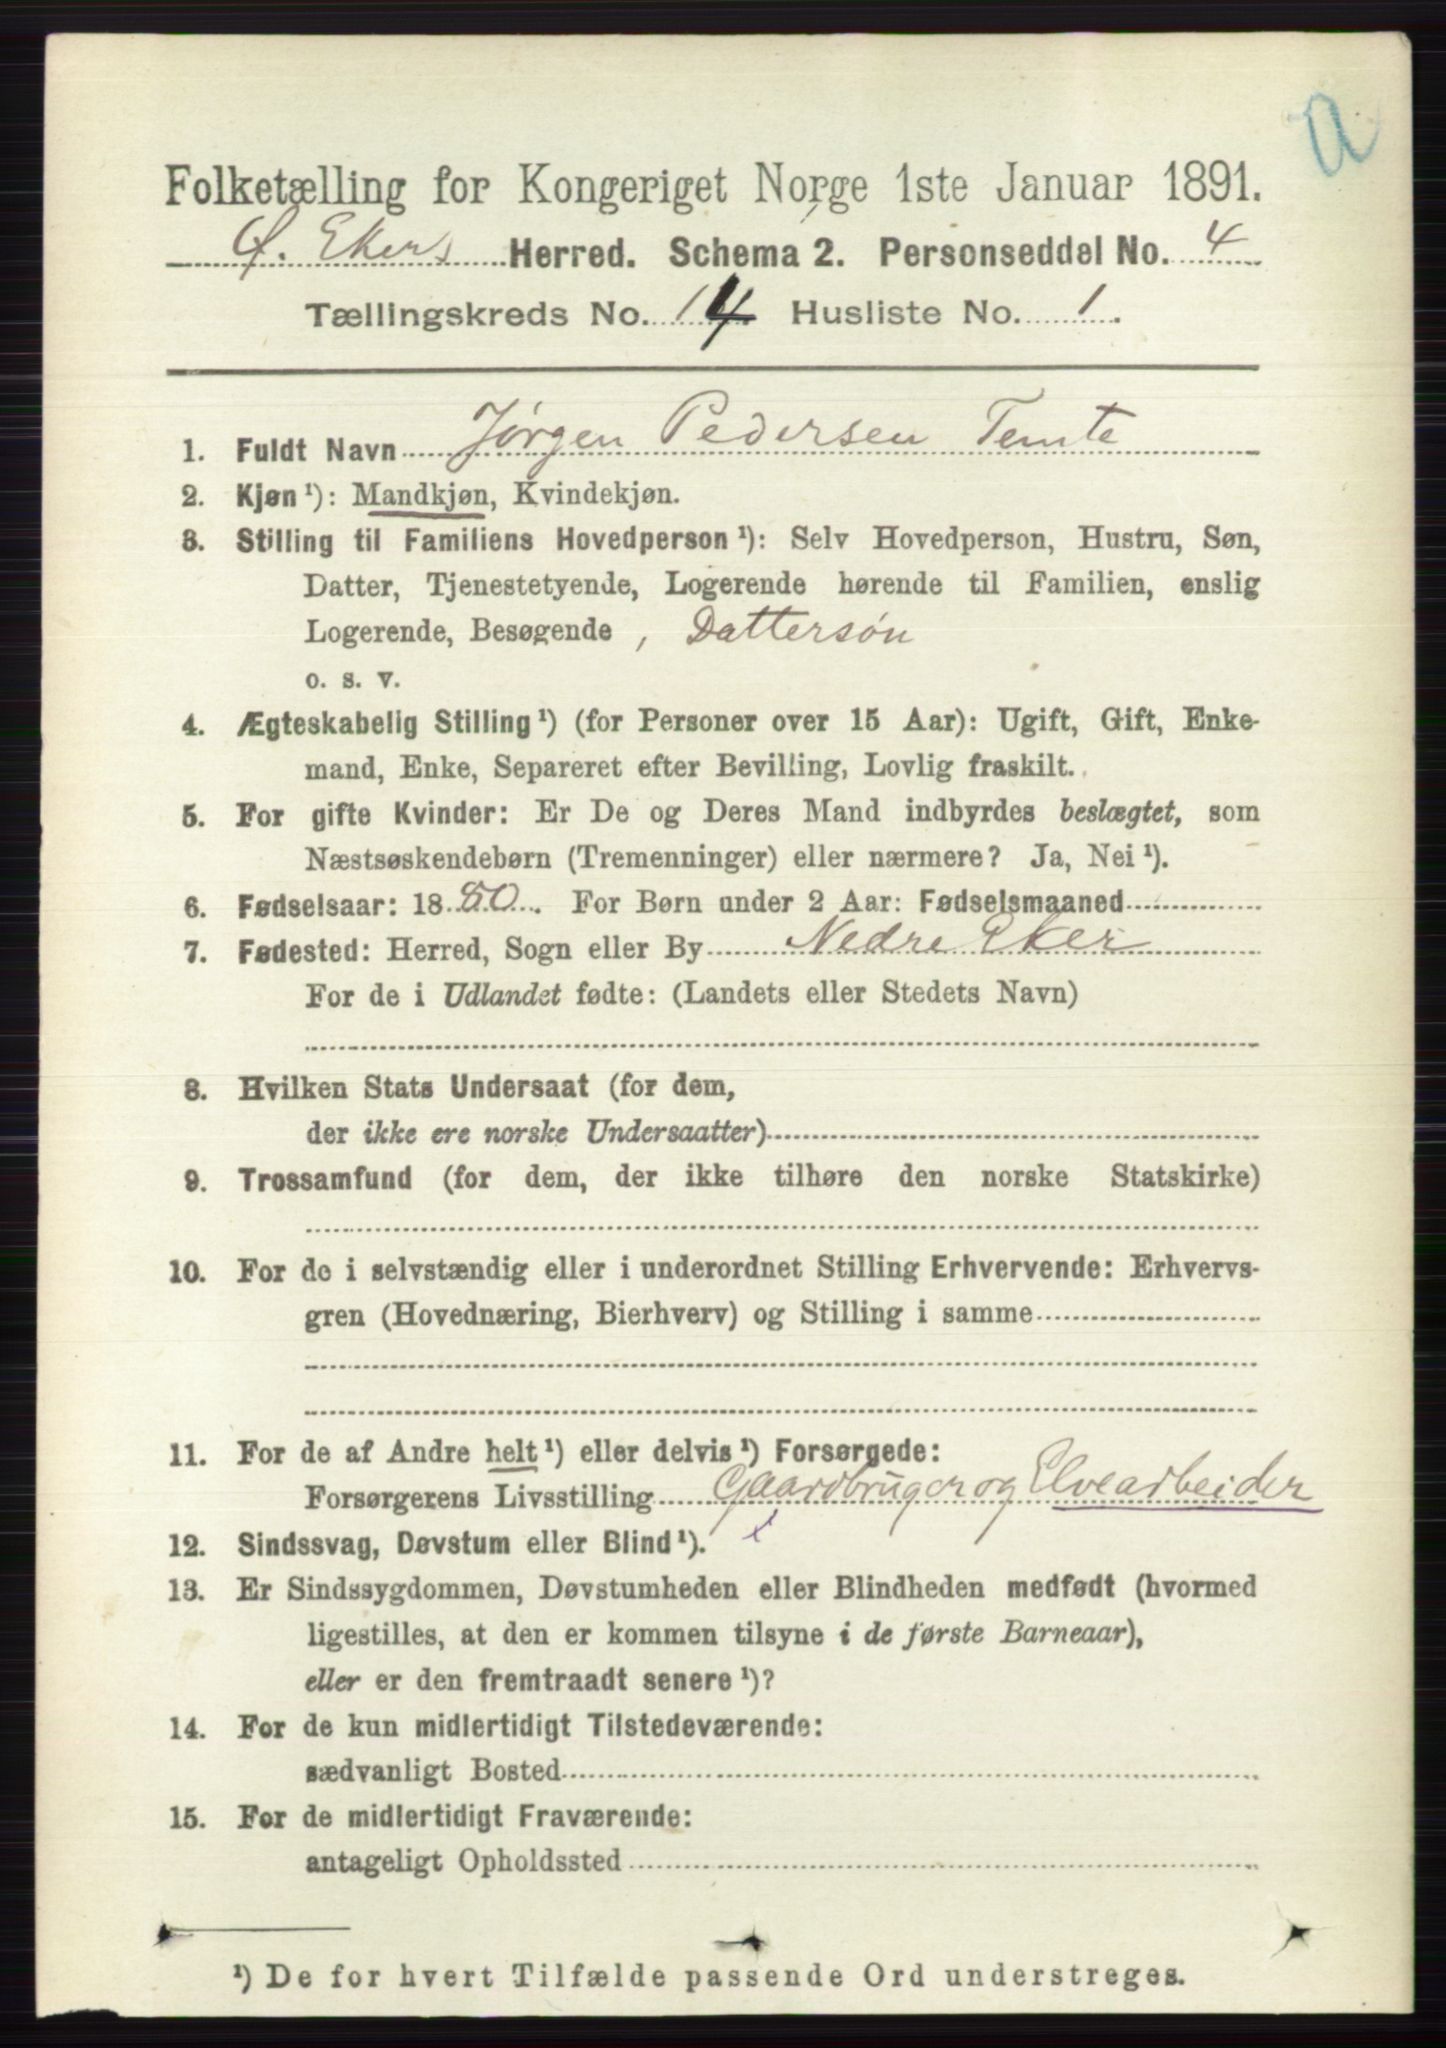 a
Folketælling for Kongeriget Norge 1ste Januar 1891.
Ø. Ekers Herred. Schema 2. Personseddel No. 4
Tællingskreds No. 14 Husliste No. 1.
1. Fuldt Navn Jørgen Pedersen Temte
2. Kjøn¹): Mandkjøn, Kvindekjøn.
3. Stilling til Familiens Hovedperson¹): Selv Hovedperson, Hustru, Søn,
Datter, Tjenestetyende, Logerende hørende til Familien, enslig
Logerende, Besøgende , Dattersøn
o. s. v.
4. Ægteskabelig Stilling¹) (for Personer over 15 Aar): Ugift, Gift, Enke-
mand, Enke, Separeret efter Bevilling, Lovlig fraskilt.
5. For gifte Kvinder: Er De og Deres Mand indbyrdes beslægtet, som
Næstsøskendebørn (Tremenninger) eller nærmere? Ja, Nei¹).
6. Fødselsaar: 1880. For Børn under 2 Aar: Fødselsmaaned
7. Fødested: Herred, Sogn eller By Nedre Eker
For de i Udlandet fødte: (Landets eller Stedets Navn)
8. Hvilken Stats Undersaat (for dem,
der ikke ere norske Undersaatter)
9. Trossamfund (for dem, der ikke tilhøre den norske Statskirke)
10. For de i selvstændig eller i underordnet Stilling Erhvervende: Erhvervs-
gren (Hovednæring, Bierhverv) og Stilling i samme
11. For de af Andre helt¹) eller delvis¹) Forsørgede:
Forsørgerens Livsstilling Gaardbruger og Elvearbeider
12. Sindssvag, Døvstum eller Blind¹).
13. Er Sindssygdommen, Døvstumheden eller Blindheden medfødt (hvormed
ligestilles, at den er kommen tilsyne i de første Barneaar),
eller er den fremtraadt senere¹)?
14. For de kun midlertidigt Tilstedeværende:
sædvanligt Bosted
15. For de midlertidigt Fraværende:
antageligt Opholdssted
¹) De for hvert Tilfælde passende Ord understreges.